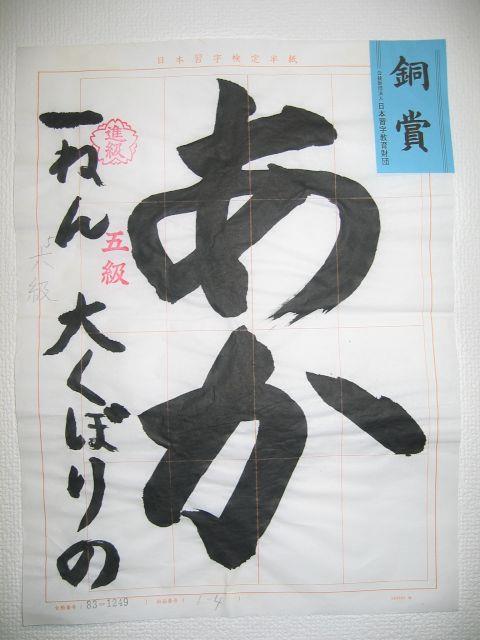 日本習字検定半紙
銅賞
公益財団法人 日本習字教育財団
あか
進級
五級
一ねん 大くぼりの
六級
会員番号( 83-1249 )
1-4